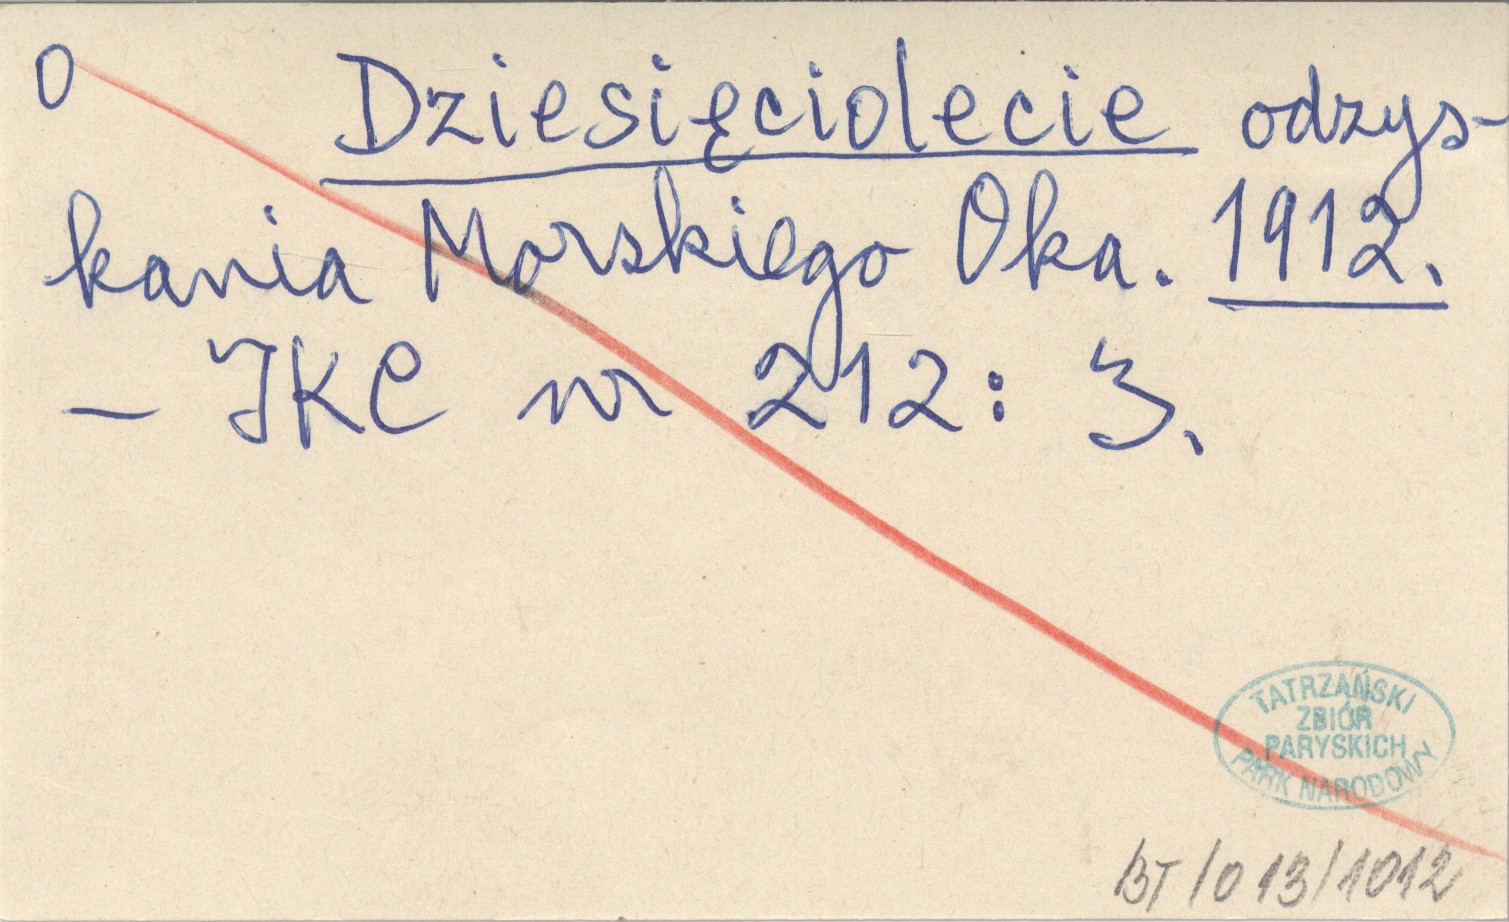 0 Dziesięciolecie odzys-
kania Morskiego Oka. 1912.
- IKC nr 212: 3.
TATRZAŃSKI
ZBIÓR
PARYSKICH
PARK NARODOWY
BT/013/1012